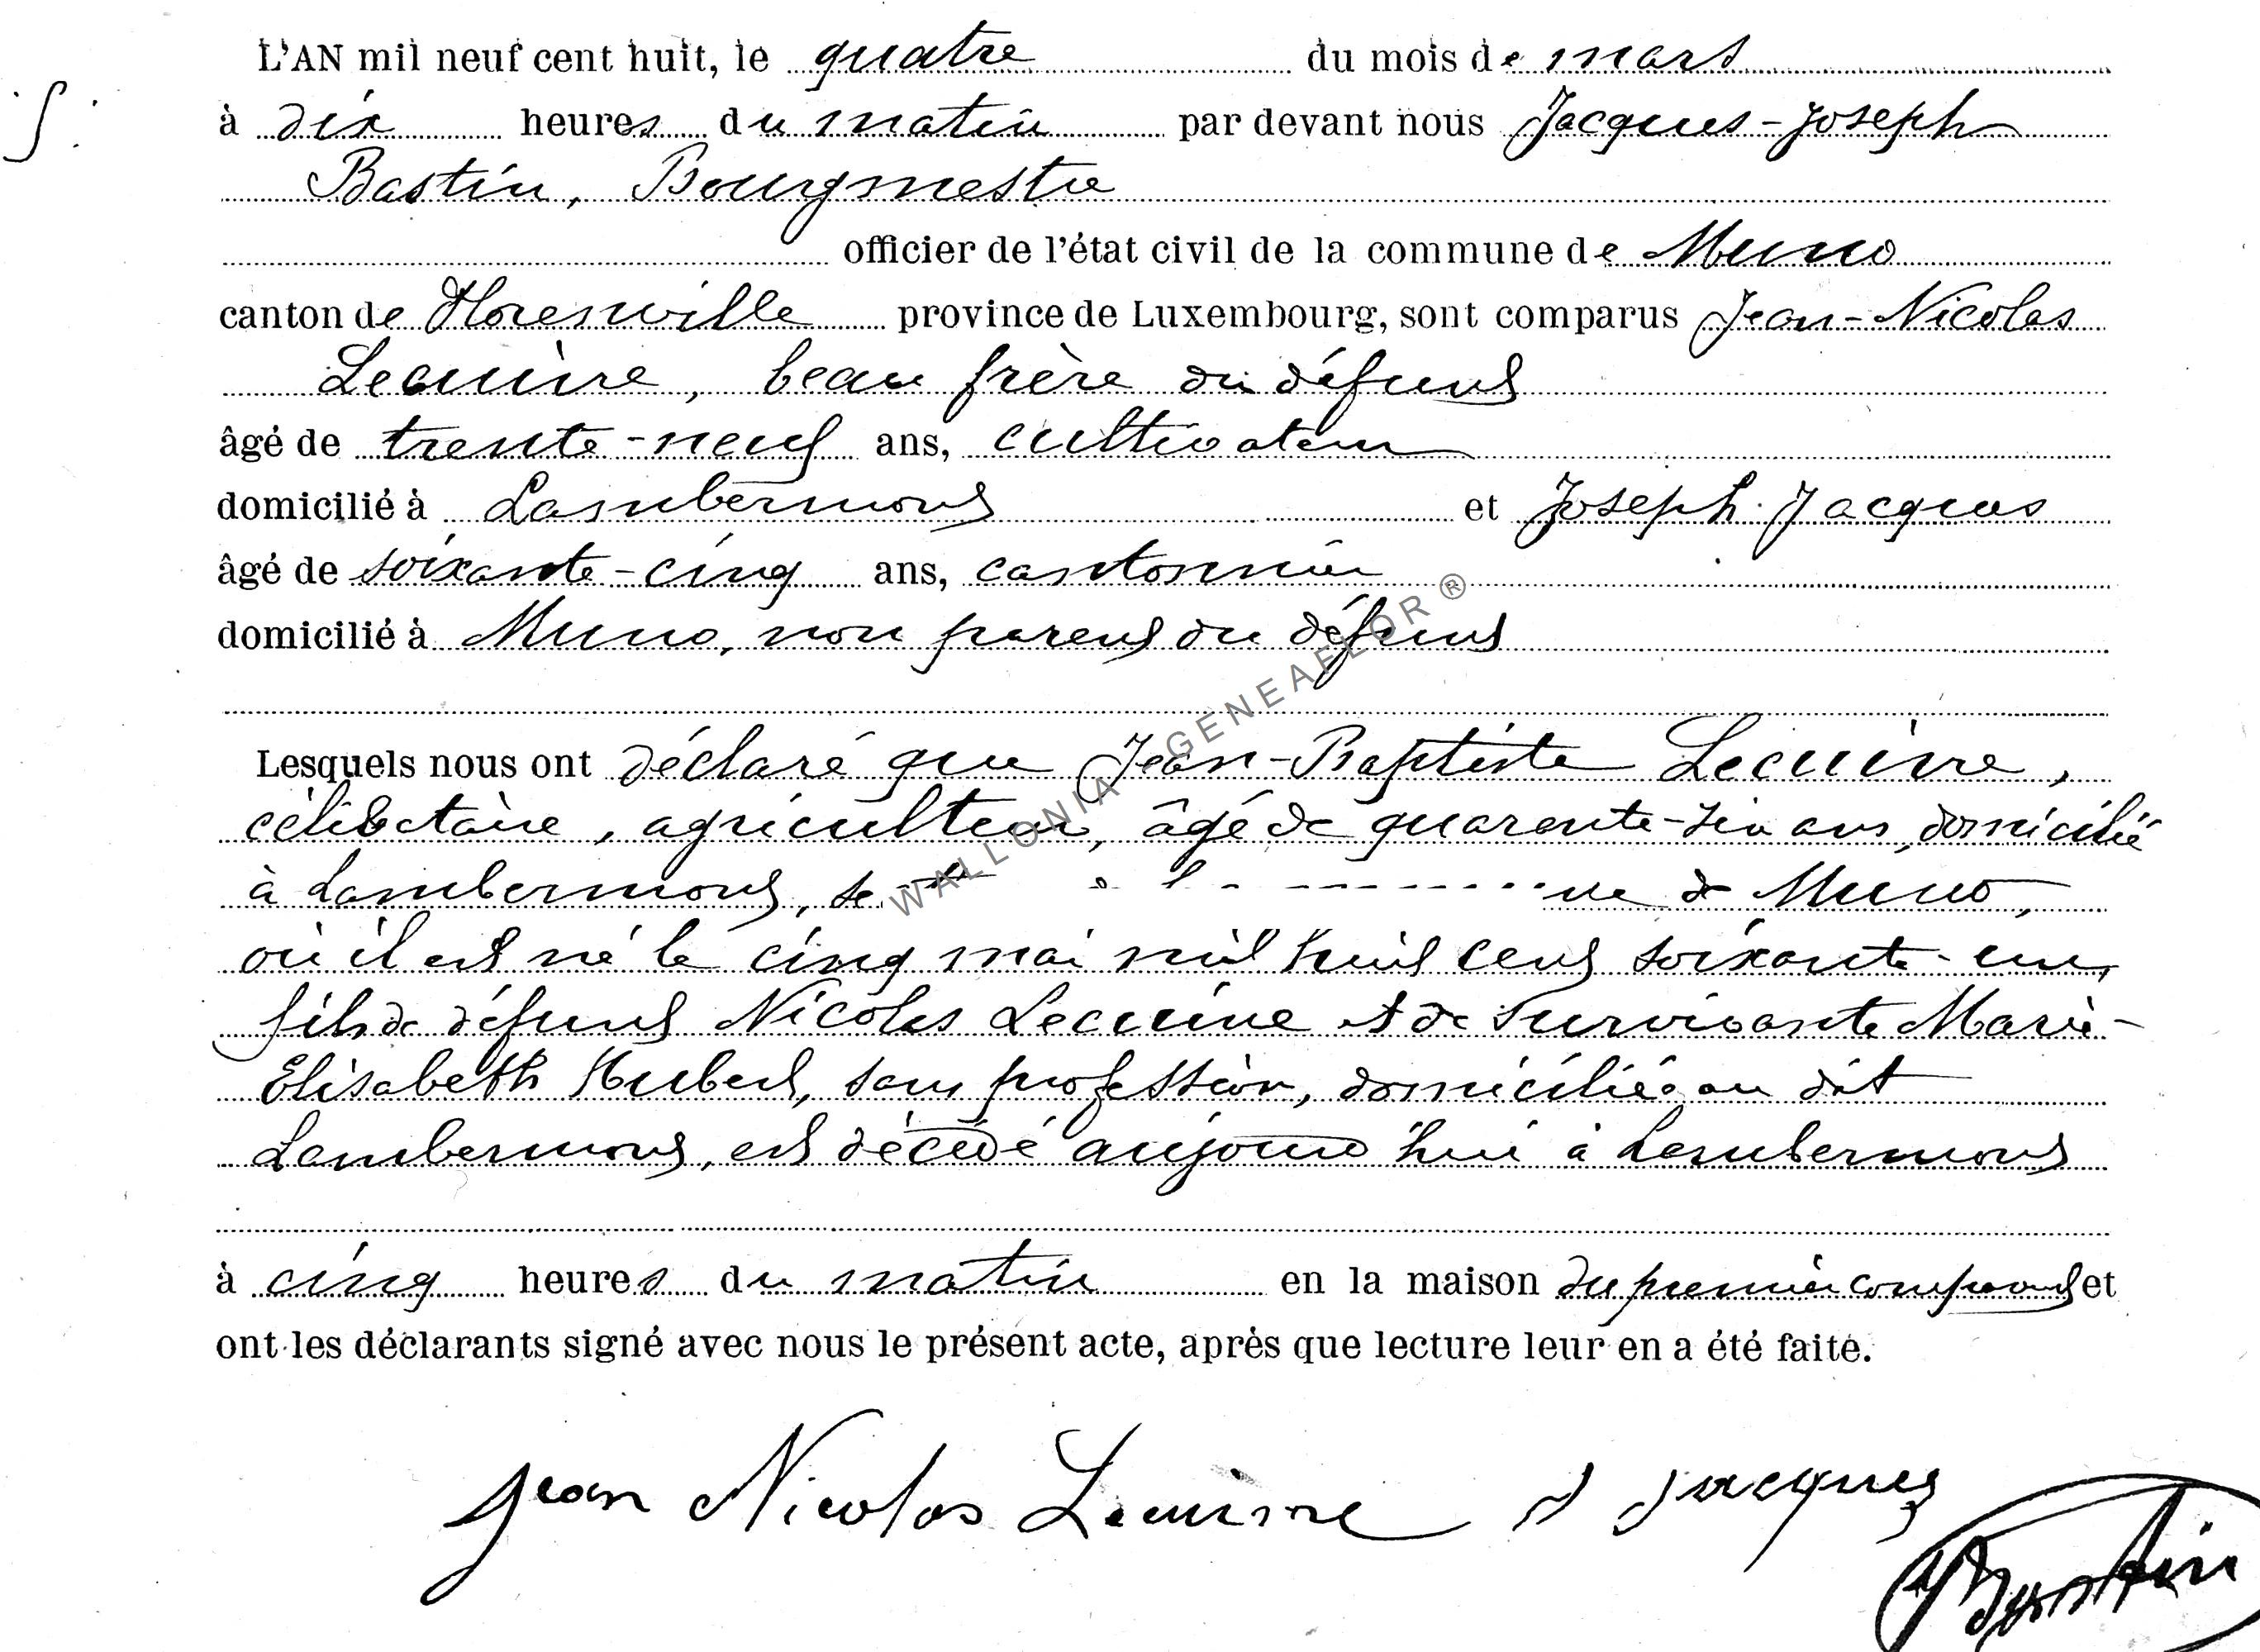 L'AN mil neuf cent huit, le quatre du mois de mars
à dix heures du matin par devant nous Jacques-Joseph
Bastin, Bourgmestre
officier de l'état civil de la commune de Muno
canton de Florenville province de Luxembourg, sont comparus Jean-Nicolas
Lecuivre, beau frère du défunt
âgé de trente-neuf ans, cultivateur
domicilié à Lambermont et Joseph Jacques
âgé de soixante-cinq ans, cantonnier
domicilié à Muno, non parent du défunt
Lesquels nous ont déclaré que Jean-Baptiste Lecuivre,
célibataire, agriculteur, âgé de quarante-six ans, domicilié
à Lambermont, de Muno,
où il est né le cinq mai mil huit cent soixante-un,
fils de défunt Nicolas Lecuivre et de survivante Marie-
Elisabeth Hubert, sans profession, domiciliée au dit
Lambermont, est décédé aujourd'hui à Lambermont
à cinq heures du matin en la maison du premier comparant et
ont les déclarants signé avec nous le présent acte, après que lecture leur en a été faite.
Jean Nicolas Lecuivre J Jacques
Bastin
WALLONIA GENEAFLOR ®